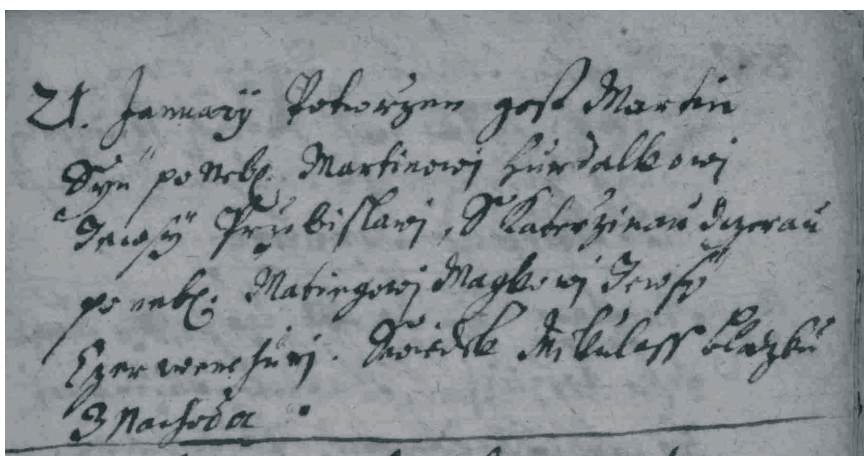 21. January Potwrzen gest Martin
Syn po Neb. Martinowi Hurdalkowi
Zewsy Przibislawi, S Katerzinau dczerau
po neb. Matiegowi Magkowi Zewsy
Czerwenehury. Swiedek Mikulass Blazku
Z Nachoda